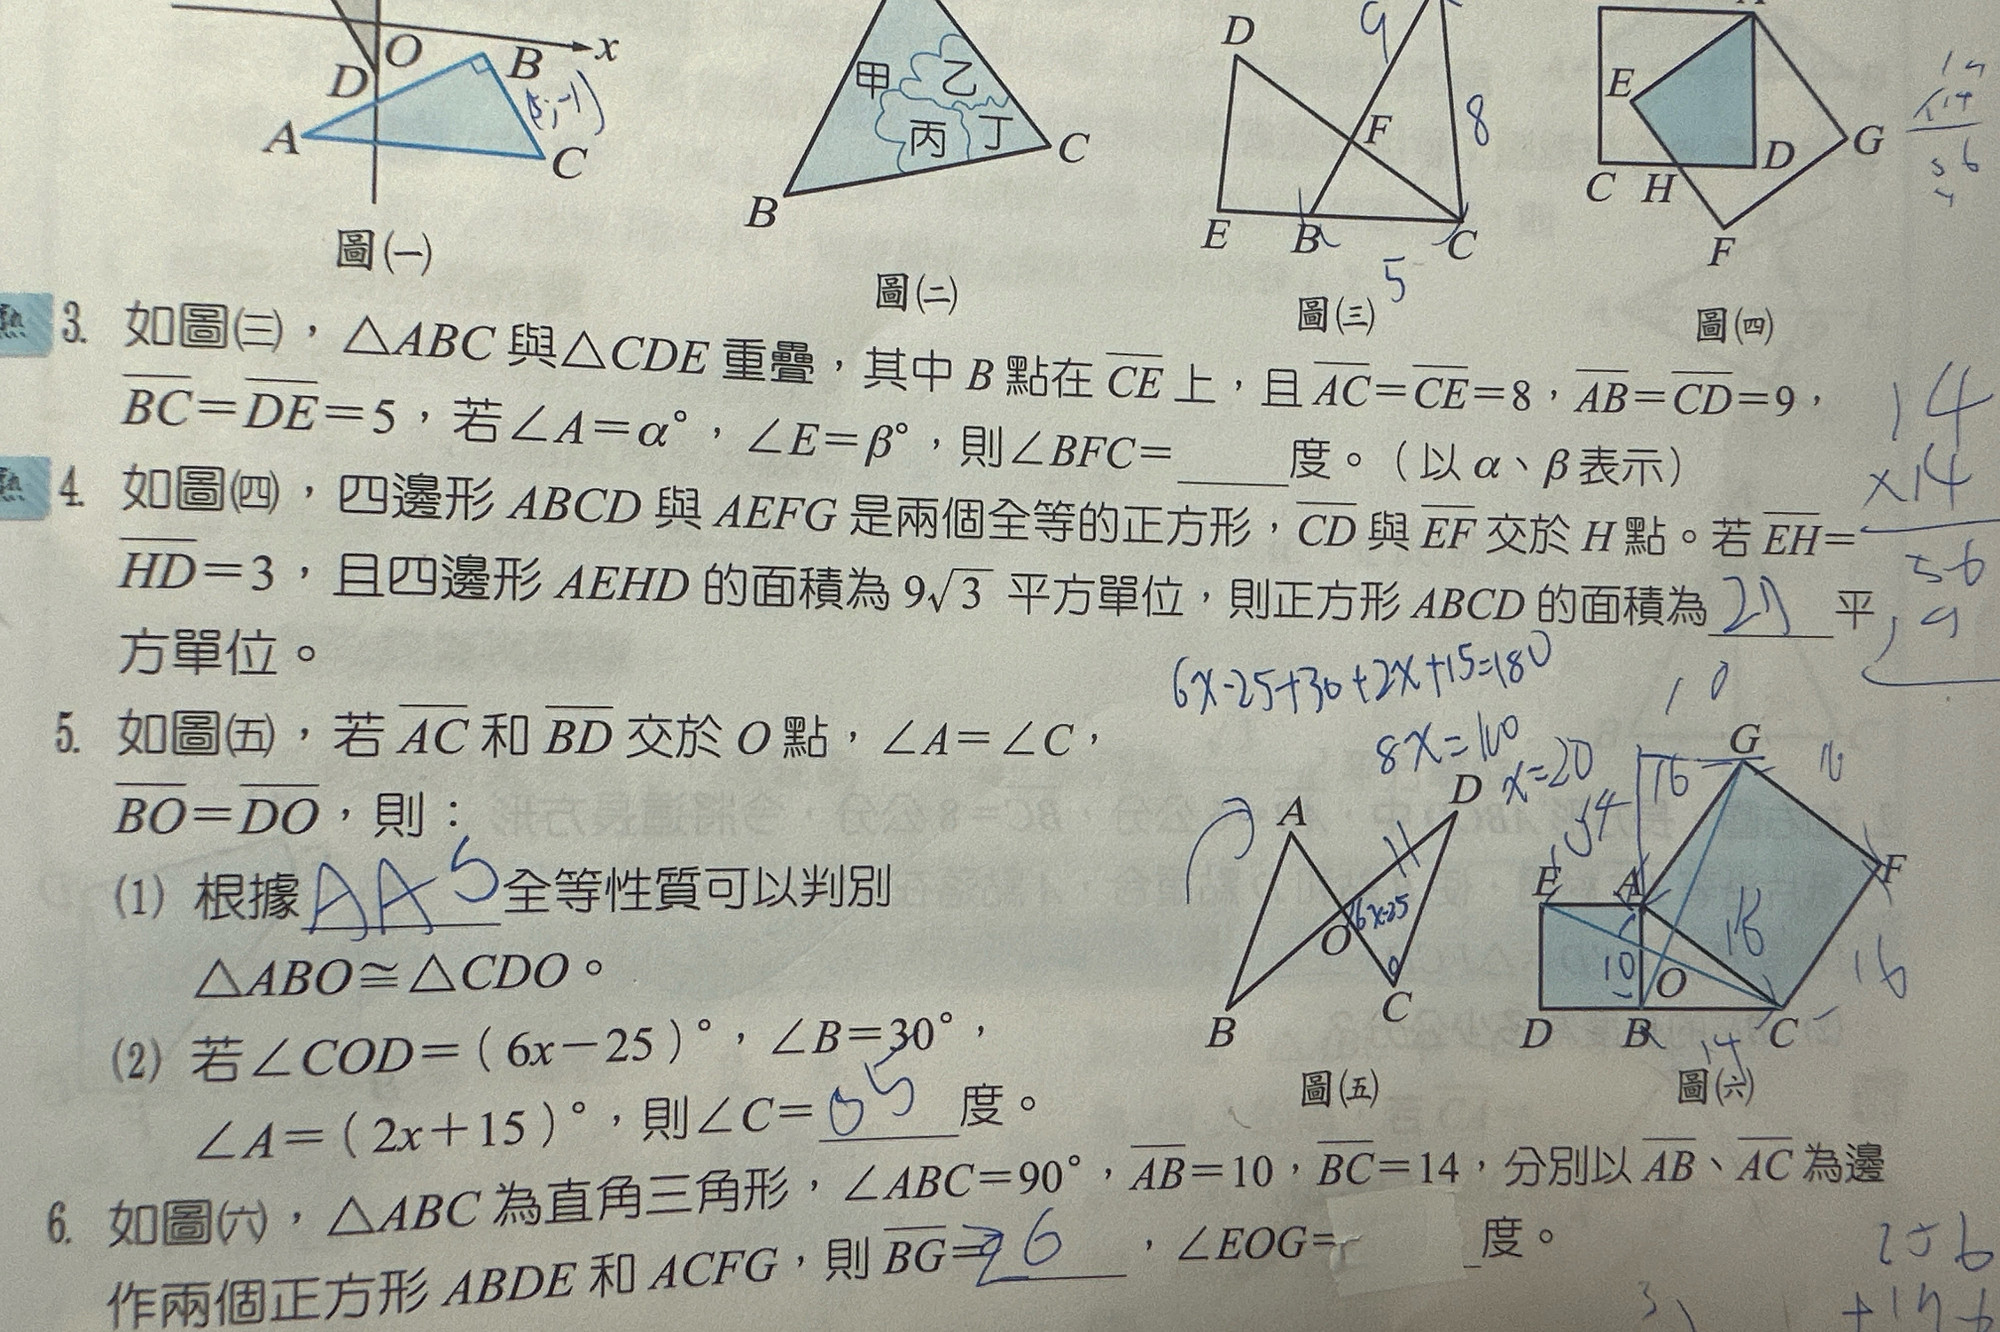 O
x
D
B
(5,-1)
A
C
圖(一)
甲
乙
丙
丁
B
C
圖(二)
D
9
F
8
E
B
C
5
圖(三)
E
D
G
C
H
F
圖(四)
熟 3. 如圖(三),△ABC 與△CDE 重疊,其中 B 點在 CE 上,且 AC=CE=8,AB=CD=9,
BC=DE=5,若∠A=α°,∠E=β°,則∠BFC=____度。(以 α、β 表示)
熟 4. 如圖(四),四邊形 ABCD 與 AEFG 是兩個全等的正方形,CD 與 EF 交於 H 點。若 EH=
HD=3,且四邊形 AEHD 的面積為 9√3 平方單位,則正方形 ABCD 的面積為 27 平
方單位。
14
×14
56
6x-25+30+2x+15=180
8x=160
x=20
5. 如圖(五),若 AC 和 BD 交於 O 點,∠A=∠C,
BO=DO,則:
(1) 根據 AAS 全等性質可以判別
△ABO≅△CDO。
(2) 若∠COD=(6x-25)°,∠B=30°,
∠A=(2x+15)°,則∠C= 55 度。
A
D
6x-25
O
B
C
圖(五)
G
16
16
14
E
A
F
10
18
16
O
D
B
C
14
圖(六)
6. 如圖(六),△ABC 為直角三角形,∠ABC=90°,AB=10,BC=14,分別以 AB、AC 為邊
作兩個正方形 ABDE 和 ACFG,則 BG= 26 ,∠EOG= 度。
256